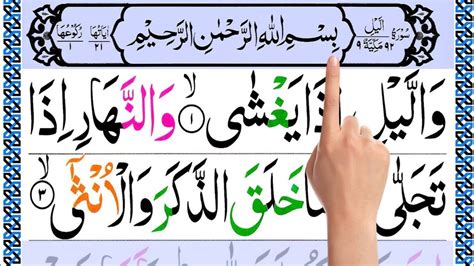 سُوْرَةُ الَّيْلِ ٩٢ مَكِّيَّةٌ ٩ بِسْمِ اللهِ الرَّحْمٰنِ الرَّحِيْمِ اٰيَاتُهَا ٢١ رُكُوْعُهَا ١
وَالَّيْلِ اِذَا يَغْشٰى ١ وَالنَّهَارِ اِذَا
تَجَلّٰى خَلَقَ الذَّكَرَ وَالْاُنْثٰٓى ٣